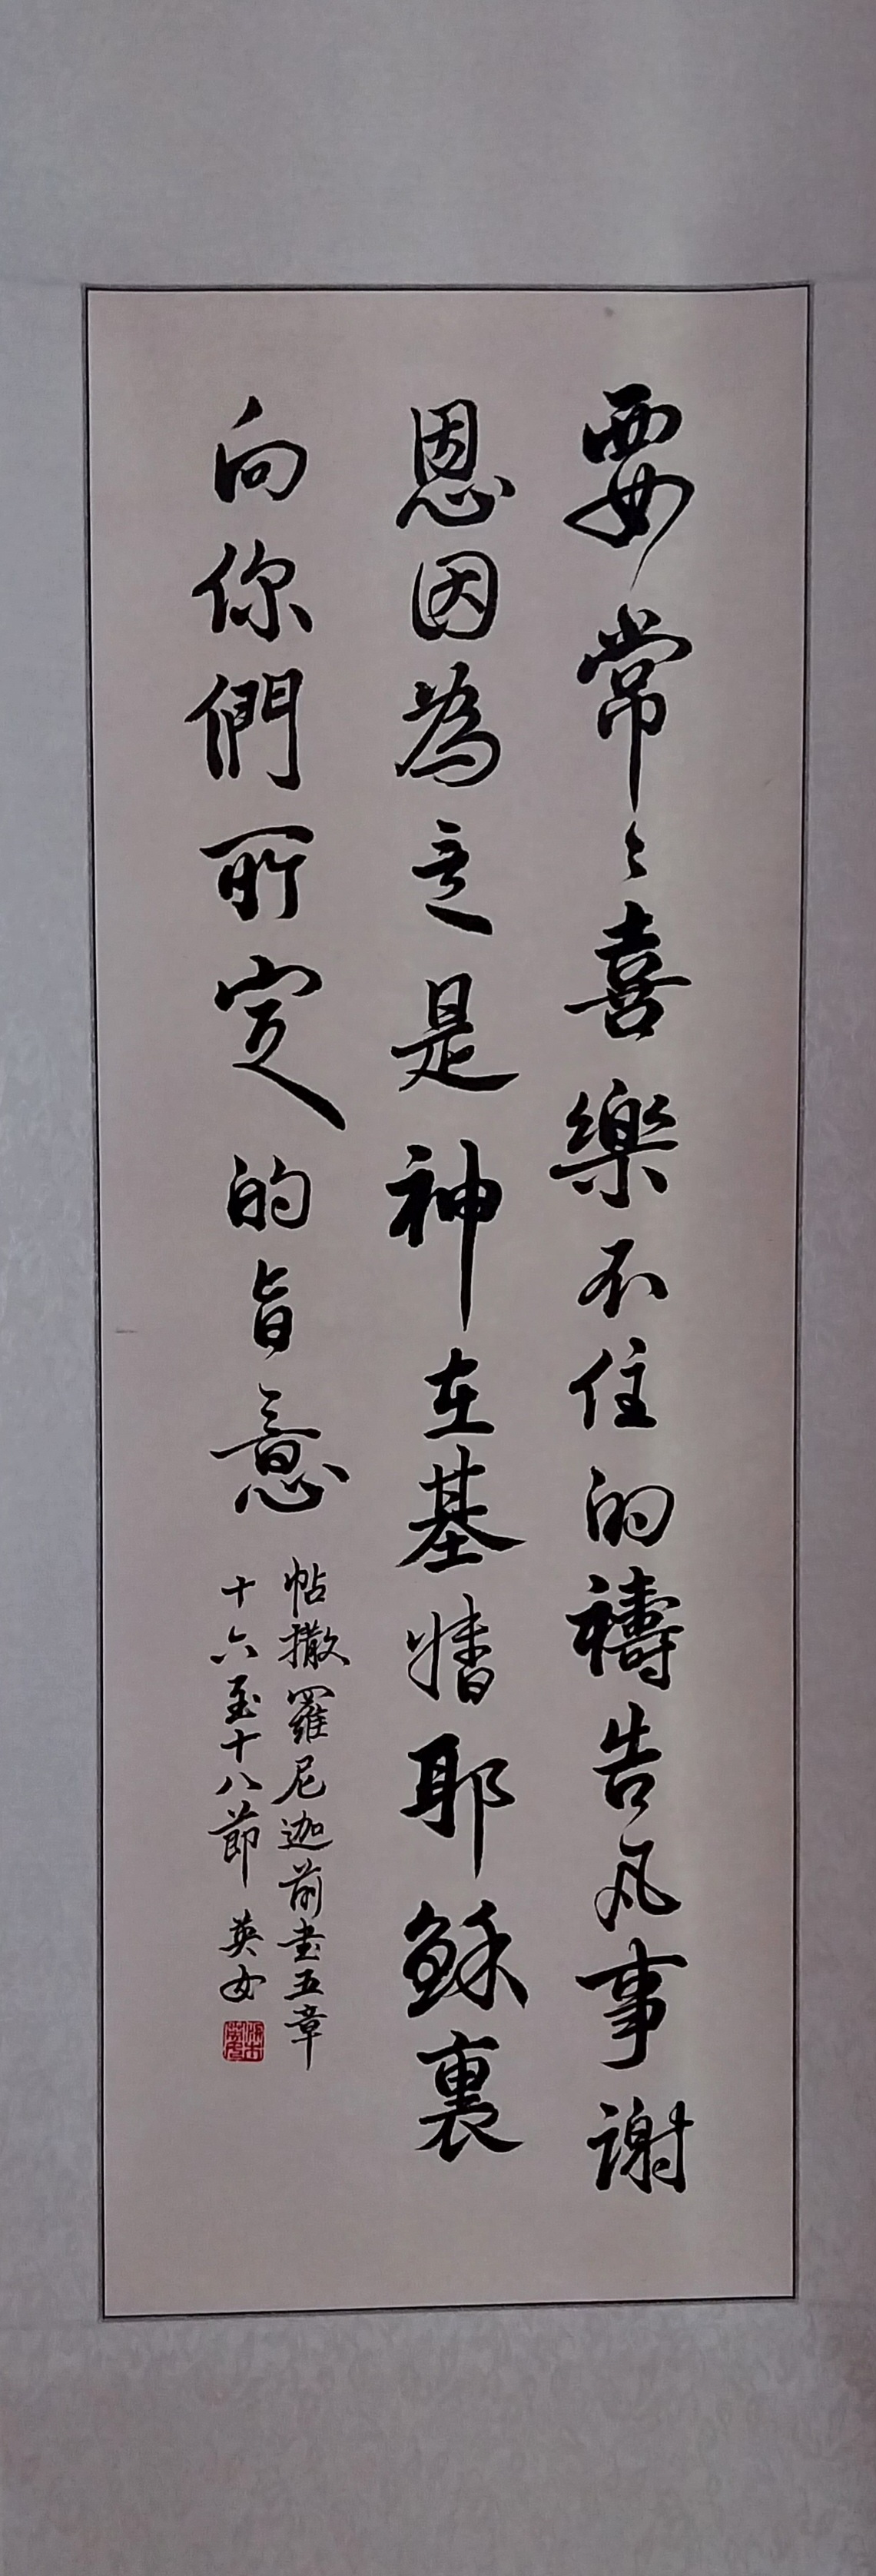 要常々喜樂不住的禱告凡事謝
恩因為這是神在基督耶穌裏
向你們所定的旨意
帖撒羅尼迦前書五章
十六至十八節 英女